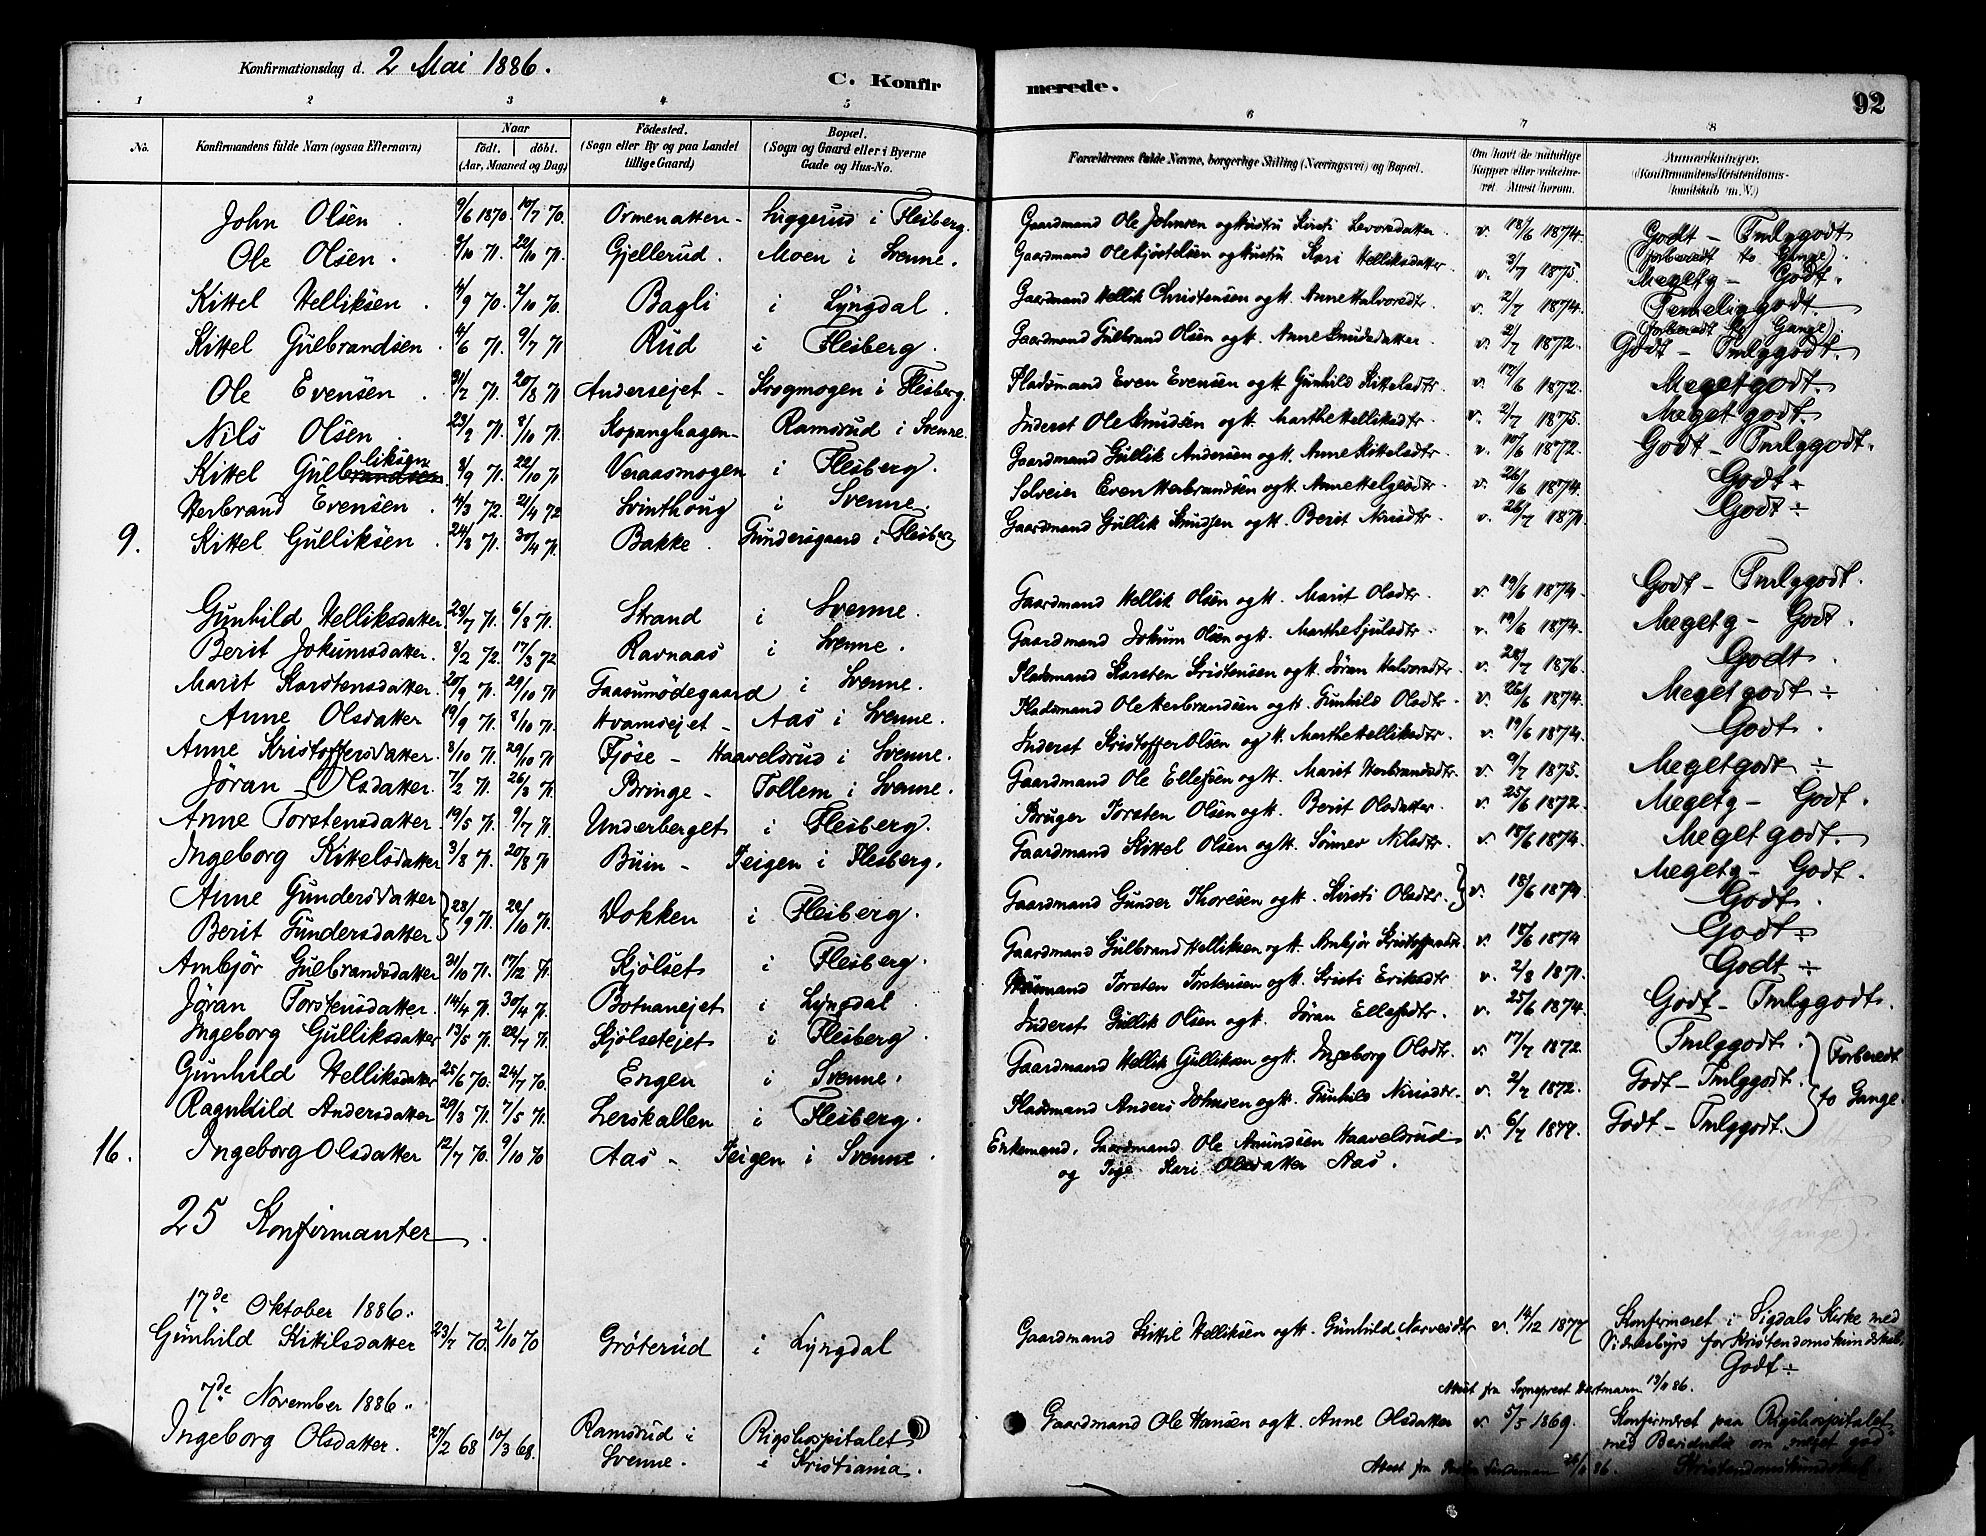 Konfirmationsdag d. 2 Mai 1886.
C. Konfirmerede.
92
1 2 3 4 5 6 7 8
No.
Konfirmandens fulde Navn (ogsaa Efternavn)
Naar
födt. döbt.
(Aar, Maaned og Dag)
Födested.
(Sogn eller By og paa Landet
tillige Gaard)
Bopæl.
(Sogn og Gaard eller i Byerne
Gade og Hus-No.
Forældrenes fulde Navne, borgerlige Stilling (Næringsvei) og Bopæl.
Om havt de naturlige
Kopper eller vaccine-
ret. Attest herom.
Anmærkninger.
(Konfirmandens Kristendoms-
kundskab m. V.)
John Olsen 9/6 1870. 10/7 70. Ormenatten - Liggerud i Flesberg. Gaardmand Ole Johnsen og Hustru Kirsti Levorsdatter v. 18/6 1874. Godt - Tmlggodt (forberedt to Gange).
Ole Olsen. 9/10 71. 22/10 71. Gjellerud - Moen i Svenne. Gaardmand Ole Kjöstelsen og Hustru Kari Helliksdatter v. 3/7 1875. Megetg - Godt.
Kittel Helliksen 4/9 70. 2/10 70. Bagli i Lyngdal. Gaardmand Hellik Christensen og H. Anne Halvorsdtr. v. 2/7 1874. Temeliggodt. (forberedt to Gange)
Kittel Gulbrandsen. 4/6 71. 9/7 71 Rud i Flesberg. Gaardmand Gulbrand Olsen og H. Anne Knudsdatter v. 2/7 1872. Godt - Tmlggodt.
Ole Evensen. 31/7 71. 20/8 71 Andersejet - Krogmogen i Flesberg. Pladsmand Even Evensen og H. Gunhild Kittelsdtr. v. 12/6 1872. Megetgodt.
Nils Olsen 23/9 71. 8/10 71. Kopanghagen - Ramsrud i Svenne. Inderst Ole Knudsen og H. Marthe Helliksdtr. v. 2/7 1875. Meget godt.
Kittel Gulliksen 3/9 71. 22/10 71 Veraasmogen i Flesberg. Gaardmand Gullik Andersen og H. Anne Kittelsdtr. v. 10/6 1872. Godt - Tmlggodt.
Herbrand Evensen. 4/3 72. 21/4 72 Svinthoug i Svenne. Selveier Even Herbrandsen og H. Anne Helgesdtr. v. 26/6 1874. Godt ÷
9. Kittel Gulliksen. 24/3 71. 30/4 71. Bakke. Gundersgaard i Flesberg Gaardmand Gullik Knudsen og H. Berit Nirisdtr. v. 26/7 1871. Godt ÷
Gunhild Helliksdatter. 23/7 71. 6/8 71. Strand i Svenne. Gaardmand Hellik Olsen og H. Marit Olsdtr. v. 19/6 1874. Godt - Tmlggodt.
Berit Jokumsdatter. 8/2 72. 17/3 72 Ravnaas i Svenne. Gaardmand Jokum Olsen og H. Marthe Sjulsdtr. v. 19/6 1874. Megetg - Godt.
Marit Karstensdatter. 20/9 71. 29/10 71 Gaasumödegaard i Svenne. Pladsmand Karsten Kristensen og H. Jöran Halvorsdtr. v. 28/7 1876. Godt.
Anne Olsdatter 19/9 71. 8/10 71. Hvamsejet - Aas i Svenne. Pladsmand Ole Herbrandsen og H. Gunhild Olsdtr. v. 26/6 1874. Megetgodt ÷
Anne Kristoffersdatter. 8/10 71. 29/10 71 Fjöse - Haaveldrud i Svenne. Inderst Kristoffer Olsen og H. Marthe Helliksdtr. v. 19/6 1874. Godt.
Jöran Olsdatter. 7/2 71. 26/3 71. Bringe - Tollem i Svenne. Gaardmand Ole Ellefsen og H. Marit Herbrandsdtr. v. 9/7 1875. Megetgodt ÷
Anne Torstensdatter. 19/5 71. 9/7 71. Underberget i Flesberg. Bruger Torsten Olsen og H. Berit Olsdatter v. 25/6 1872. Megetg - Godt.
Ingeborg Kittelsdatter 3/8 71. 20/8 71 Buin - Teigen i Flesberg. Gaardmand Kittel Olsen og H. Sönnev Nilsdtr. v. 18/6 1874. Megetgodt.
Anne Gundersdatter } 23/9 71. 22/10 71. Dokken i Flesberg. Gaardmand Gunder Thoresen og H. Kirsti Olsdtr. } v. 18/6 1874 Megetg - Godt.
Berit Gundersdatter } Godt.
Ambjör Gulbrandsdatter 31/10 71. 17/12 71. Kjölset i Flesberg. Gaardmand Gulbrand Helliksen og H. Ambjör Kristoffersdtr. v. 18/6 1874 Godt ÷
Jöran Torstensdatter. 14/4 71. 30/4 71. Botnanejet i Lyngdal Husmand Torsten Torstensen og H. Kristi Eriksdtr. v. 2/8 1871. Godt ÷
Ingeborg Gulliksdatter 13/5 71. 22/7 71. Kjölsetejet i Flesberg. Inderst Gullik Olsen og H. Jöran Ellefsdtr. v. 25/6 1874. Godt - Tmlggodt.
Gunhild Helliksdater 25/6 70. 24/7 70. Engen i Svenne. Gaardmand Hellik Gulliksen og H. Ingeborg Olsdtr. v. 17/7 1872. Tmlggodt. } Forberedt
Ragnhild Andersdatter 29/3 71. 7/5 71. Lerskallen i Flesberg. Pladsmand Anders Johnsen og H. Gunhild Nirisdtr. v. 2/7 1872. Godt - Tmlggodt. } to Gange.
16. Ingeborg Olsdatter 12/7 70. 9/10 70 Aas - Teigen i Svenne. Enkemand, Gaardmand Ole Amundsen Haaveldrud v. 6/7 1877. Godt - Tmlggodt. }
og Pige Kari Olsdatter Aas.
25 Konfirmanter.
17de Oktober 1886.
Gunhild Kittilsdatter 23/7 70. 2/10 70 Gröterud i Lyngdal Gaardmand Kittil Helliksen og H. Gunhild Narvesdtr v. 14/12 1877 Konfirmeret i Sigdals Kirke med
Vidnesbyrd for Kristendomskundskab
Godt ÷
Attest fra Sogneprest Hartmann 13/11 86.
7de November 1886.
Ingeborg Olsdatter. 27/2 68 10/3 68. Ramsrud i Svenne. Rigshospitalet i Kristiania. Gaardmand Ole Hansen og H. Anne Olsdatter v. 5/5 1869. Konfirmeret paa Rigshospitalet
med om meget god
Attest fra 86. Kristendomskundskab.